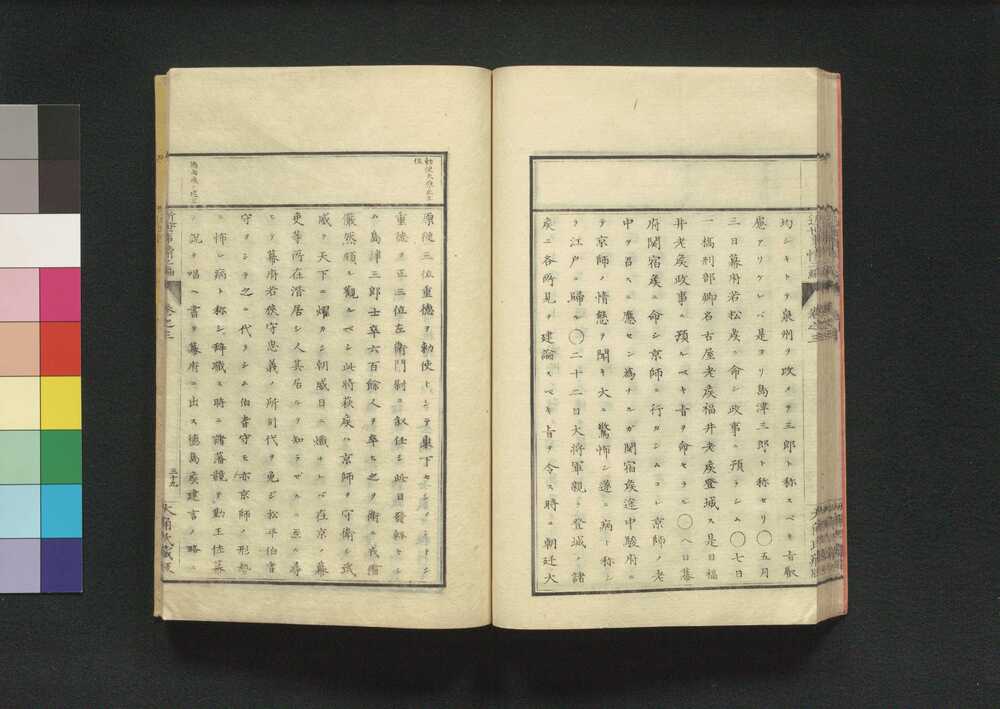 均シキトヲ泉州ヲ改メテ三郎ト称スベキ旨叡
慮アリケレバ是ヨリ島津三郎ト称セリ〇五月
三日幕府若松矦ニ命シ政事ニ預ラシム〇七日
一橋刑部卿名古屋老矦福井老矦登城ス是日福
井老矦政事ニ預ルベキ旨ヲ命セラル〇八日幕
府関宿矦ニ命シ京師ニ行カシムコレ京師ノ老
中ヲ召スニ應セン為ナルガ関宿矦途中駿府ニ
テ京師ノ情態ヲ聞キ大ニ驚怖シ遽ニ病ト称シ
テ江戸ニ歸ル〇二十二日大将軍親ラ登城ノ諸
矦ニ各所見ヲ建論スベキ旨ヲ令ス時ニ朝廷大
原従三位重德ヲ勅使トシテ東下セシメ
重德ヲ正三位左衛門督ニ叙任シ此日發輅セシ
ム島津三郎士卒六百餘人ヲ率ヒ之ヲ衛ル
儼然頗ル觀ルベシ此時萩矦ハ京師ヲ守衛シ
威ヲ天下ニ耀カシ朝威日ニ熾ナレバ在京ノ幕
吏等所在潜居シ人其居ル所ヲ知ラザルニ至ル尋
ヒテ幕府若狭守忠義ノ所司代ヲ免ジ松平伯耆
守ヲシテ之ニ代ラシム伯耆守モ亦京師ノ形勢
ニ怖レ病ト称シ辞職ス時ニ諸藩競テ勤王佐幕
ノ説ヲ唱ヘ書ヲ幕府ニ出ス德島矦建言ノ略ニ
卷之三
三十九